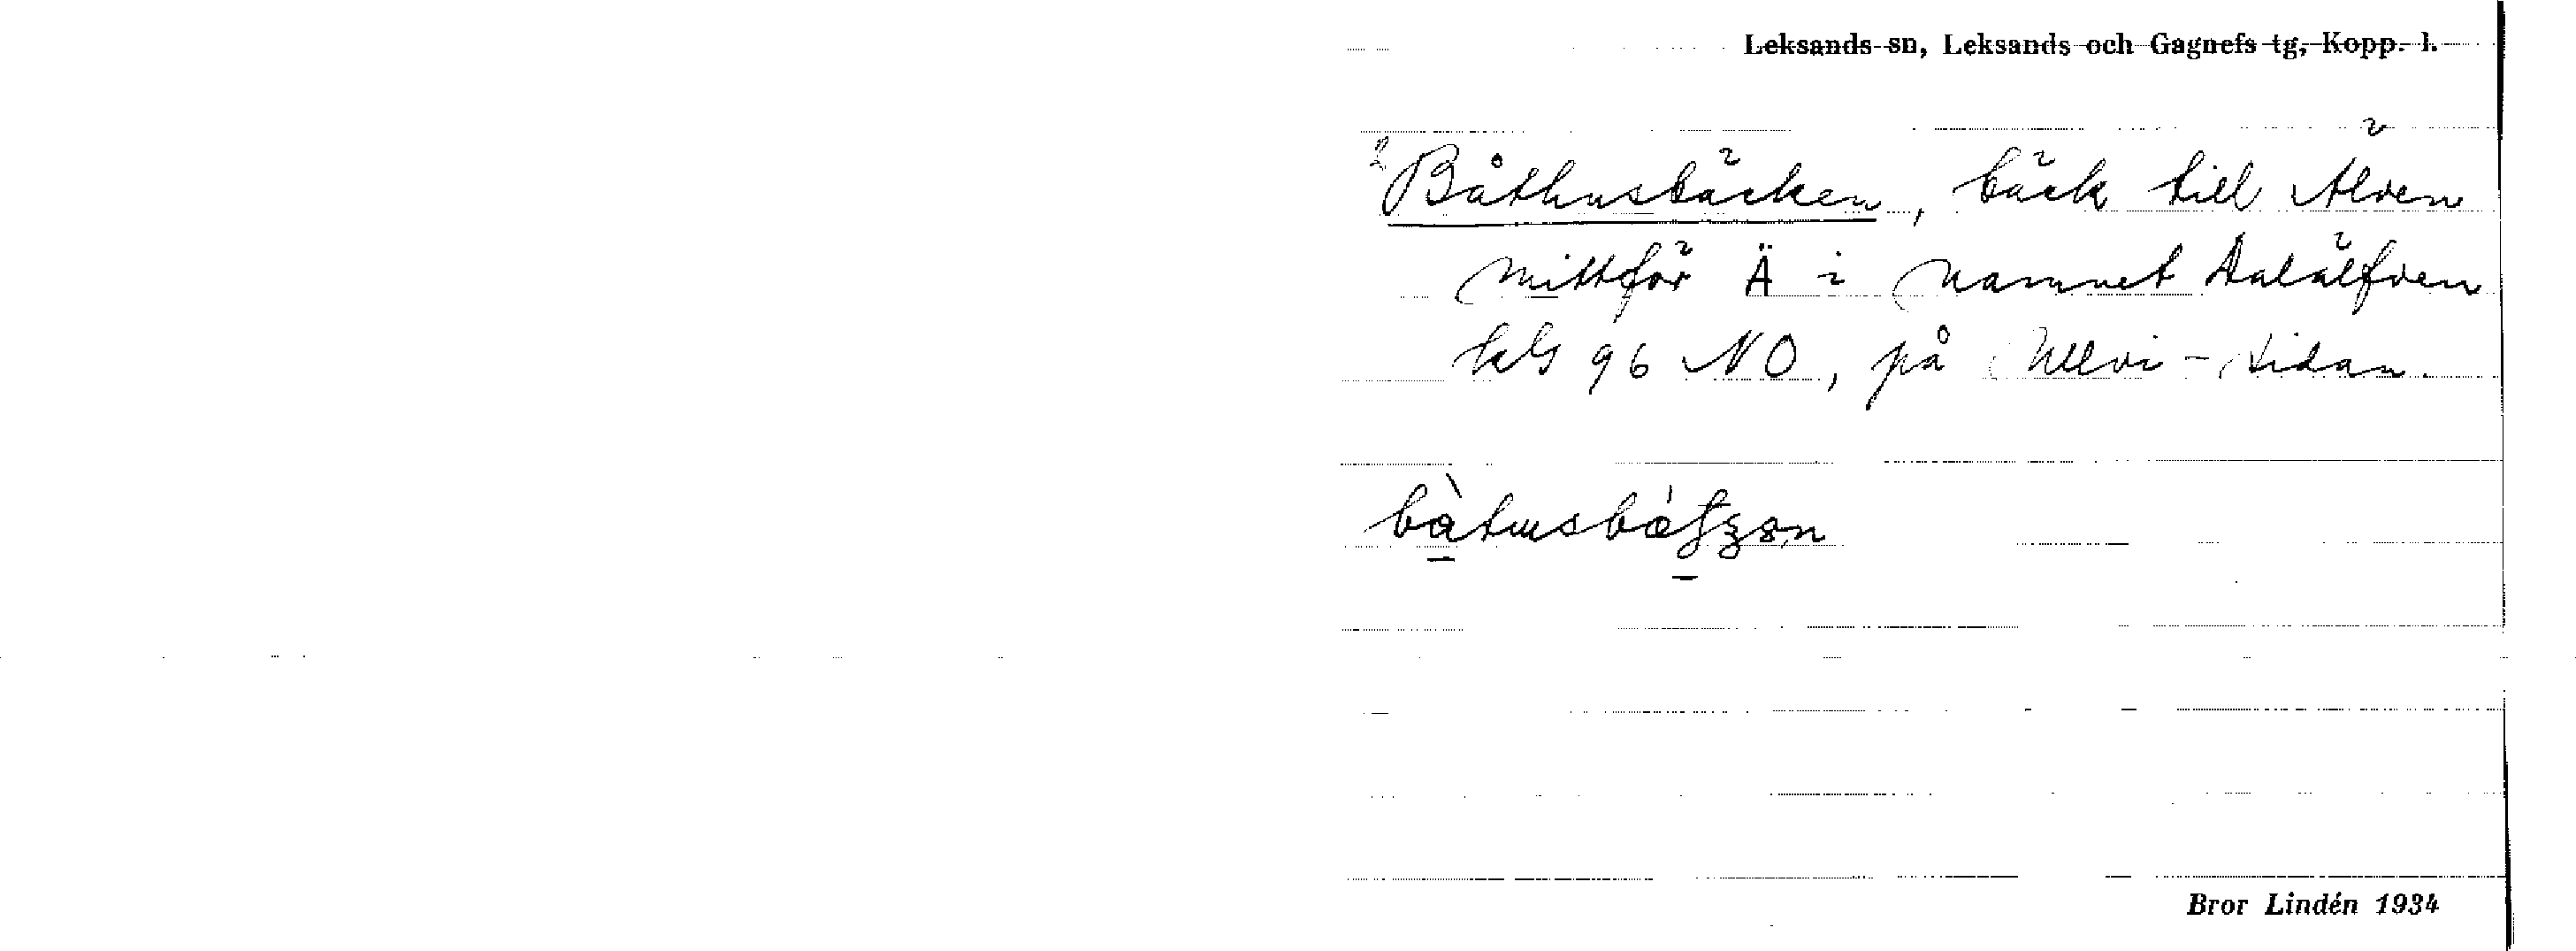 Leksands sn, Leksands och Gagnefs tg, Kopp. l.
2 Båthusbäcken, bäck till Älven
mittför Ä i namnet Dalälfven
kbl 96 NO, på Ullvi-sidan.
Bror Lindén 1934